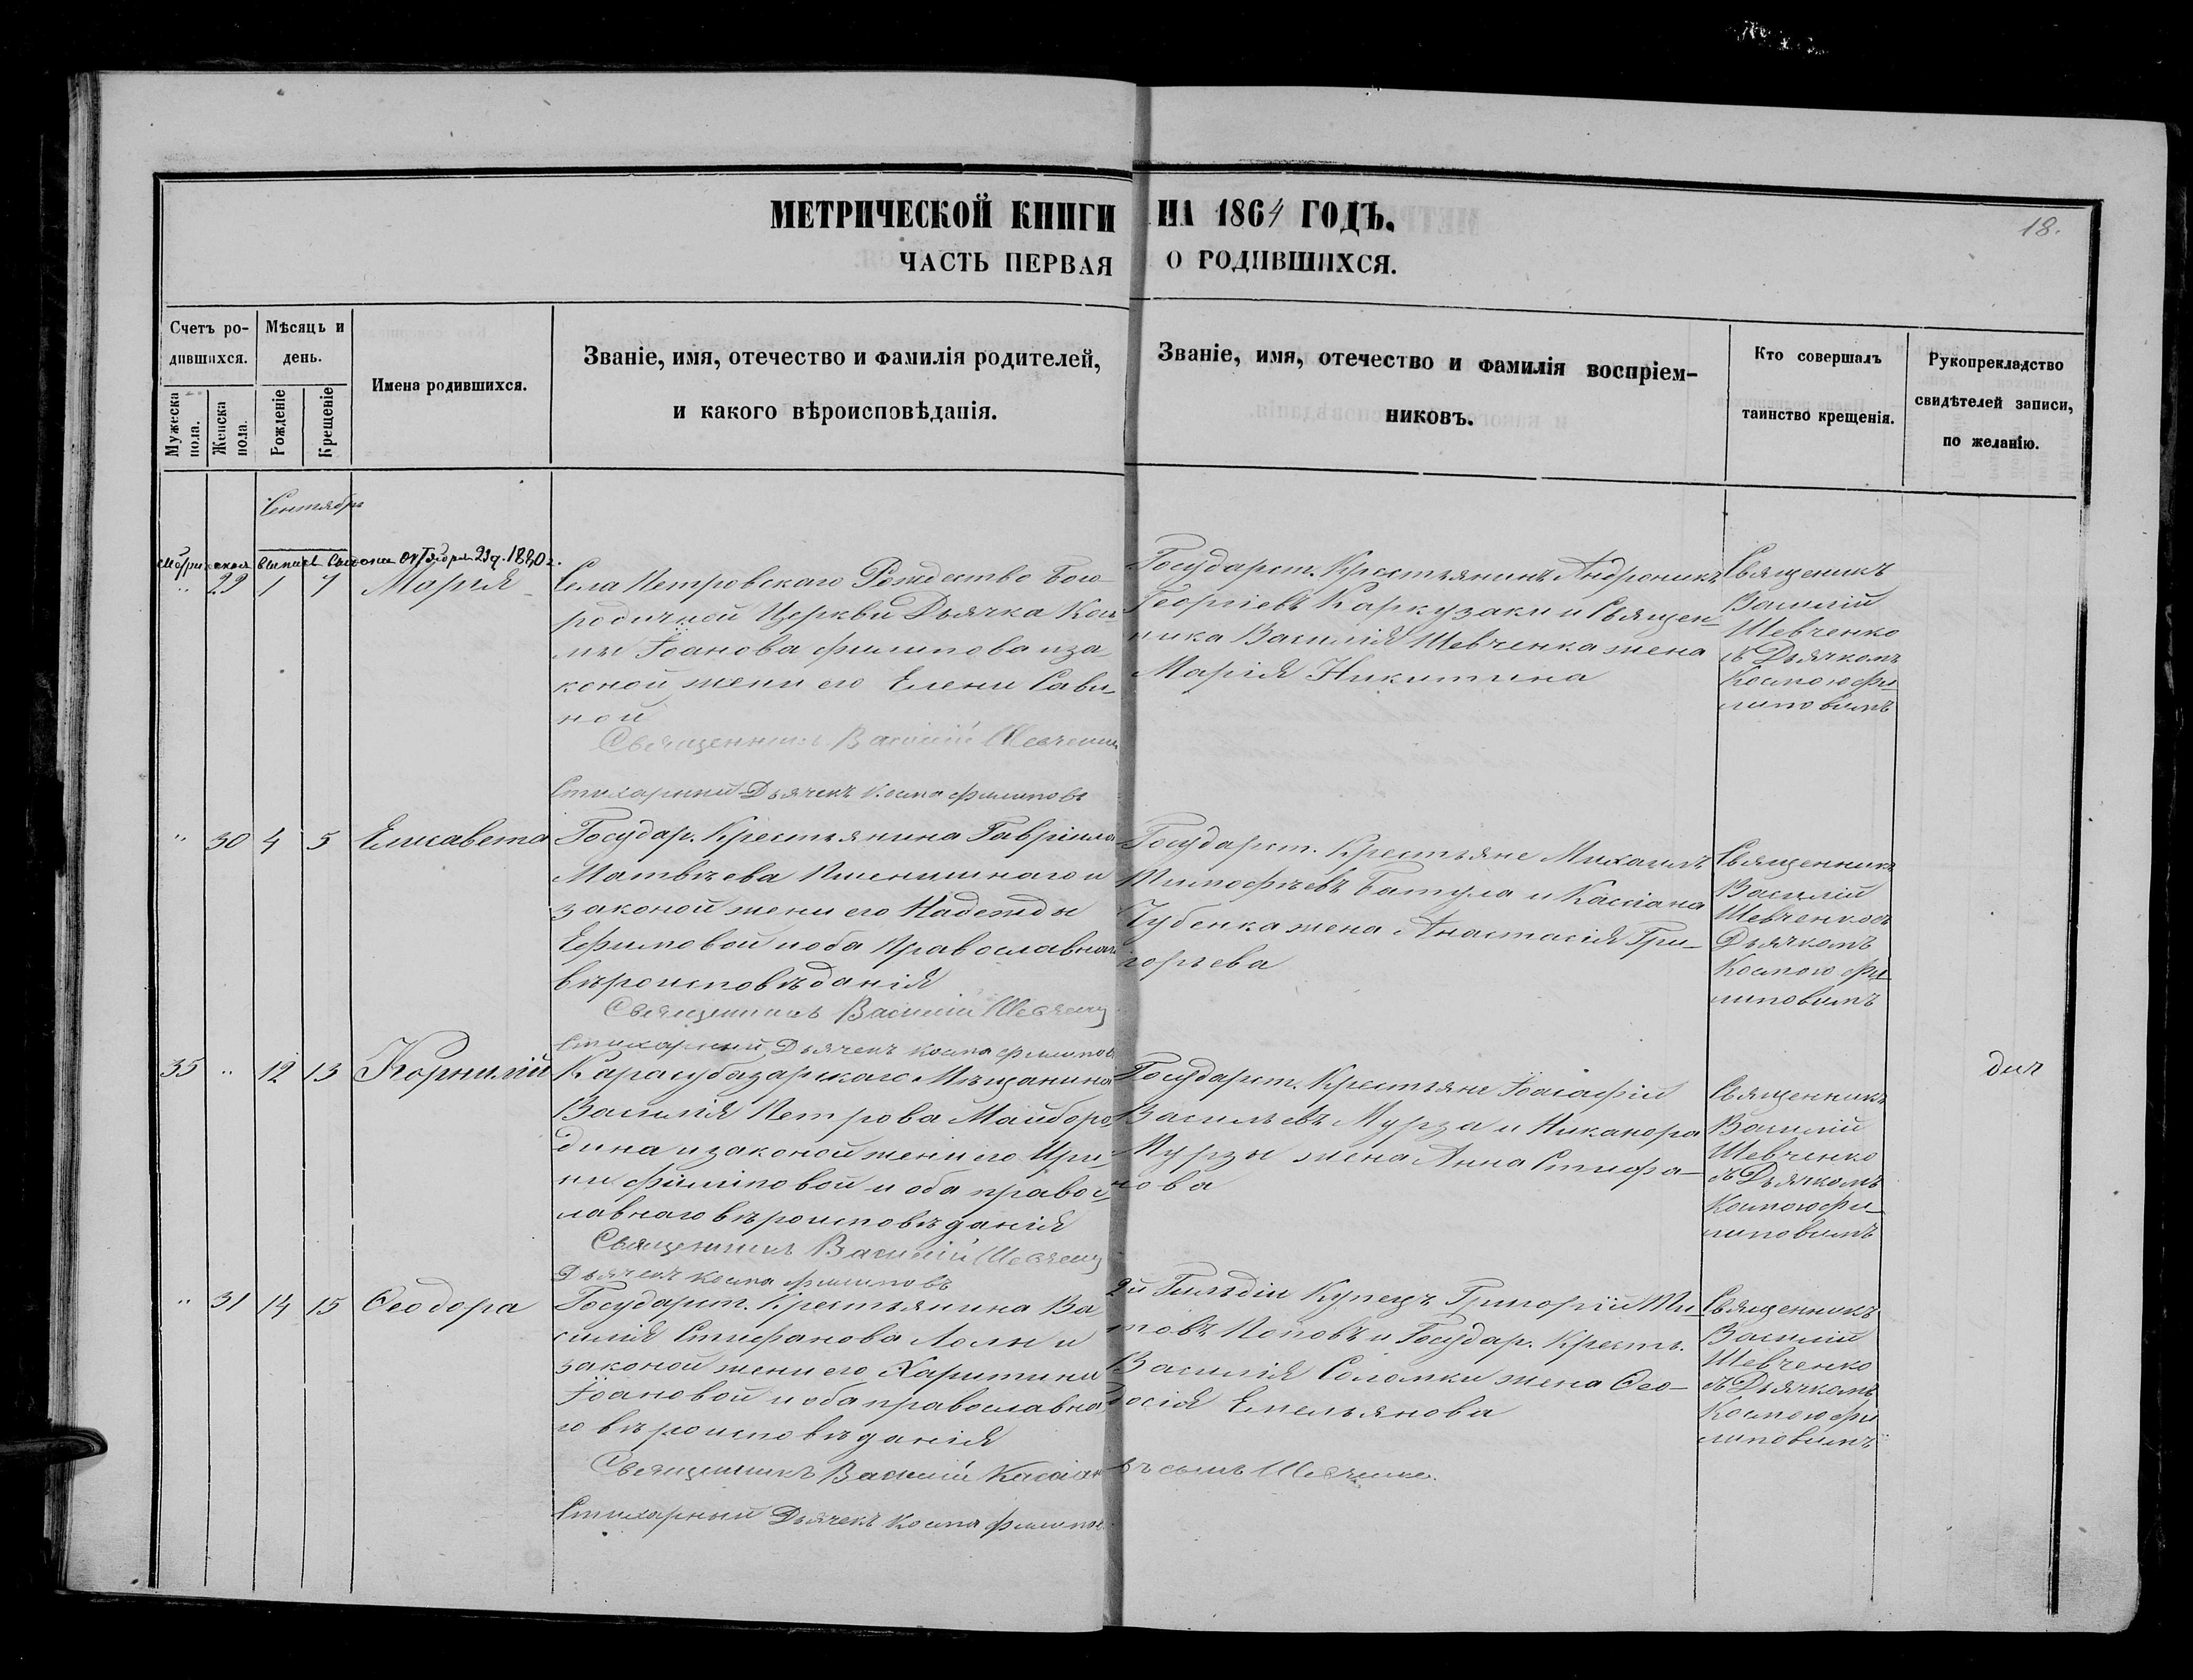 18.
МЕТРИЧЕСКОЙ КНИГИ НА 1864 ГОДЪ.
ЧАСТЬ ПЕРВАЯ О РОДИВШИХСЯ.
Счетъ ро-
дившихся.
Мужеска
пола.
Женска
пола.
Мѣсяцъ и
день.
Рожденіе
Крещеніе
Имена родившихся.
Званіе, имя, отечество и фамилія родителей,
и какого вѣроисповѣданія.
Званіе, имя, отечество и фамилія воспріем-
никовъ.
Кто совершалъ
таинство крещенія.
Рукоприкладство
свидѣтелей записи,
по желанію.
Сентябрь
Октября 29 д. 1880 г.
" 29 1 7 Марія
Села Петровскаго Рождество Бого
родичной Церкви Дьячка Кос
мы Іоанова Филипова и за
коной жени его Елени Сави
ной
Священникъ Василій Шевченко
Стихарный Дьячекъ Косма Филиповъ
Государст. Крестьянинъ Андроникъ
Георгіевъ Каркузаки и Священ-
ника Василія Шевченка жена
Марія Никитина
Священикъ
Василій
Шевченко
съ Дьячкомъ
Космою Фи-
липовимъ
" 30 4 5 Елисавета
Государ. Крестьянина Гавріила
Матвѣева Пшенишнаго и
законой жени его Надежды
Ефимовой и оба Православнаго
вѣроисповѣданія
Священникъ Василій Шевченко
Стихарный Дьячекъ Косма Филиповъ
Государст. Крестьяне Михаилъ
Тимофѣевъ Батула и Кассіана
Чубенка жена Анастасія Гри-
горьева
Священникъ
Василій
Шевченко съ
Дьячкомъ
Космою Фи-
липовимъ
35 " 12 13 Корнилій
Карасубазарскаго Мѣщанина
Василія Петрова Майборо-
дина и законой жени его Ири-
ни Филиповой и оба правос-
лавнаго вѣроисповѣданія
Священникъ Василій Шевченко
Дьячекъ Косма Филиповъ
Государст. Крестьяне Іоасафій
Васильевъ Мурза и Никанора
Мурзы жена Анна Стефа-
нова
Священникъ
Василій
Шевченко
съ Дьячкомъ
Космою Фи-
липовимъ
" 31 14 15 Ѳеодора
Государст. Крестьянина Ва-
силія Стефанова Лолы и
законой жени его Харитини
Іоановой и оба православна
го вѣроисповѣданія
Священникъ Василій Касіановъ сынъ Шевченко.
Стихарный Дьячекъ Косма Филиповъ
2й Гильдіи Купецъ Григорій Ти-
товъ Поповъ и Государ. Кресть.
Василія Соломки жена Ѳео-
досія Емельянова
Священникъ
Василій
Шевченко
съ Дьячкомъ
Космою Фи
липовимъ